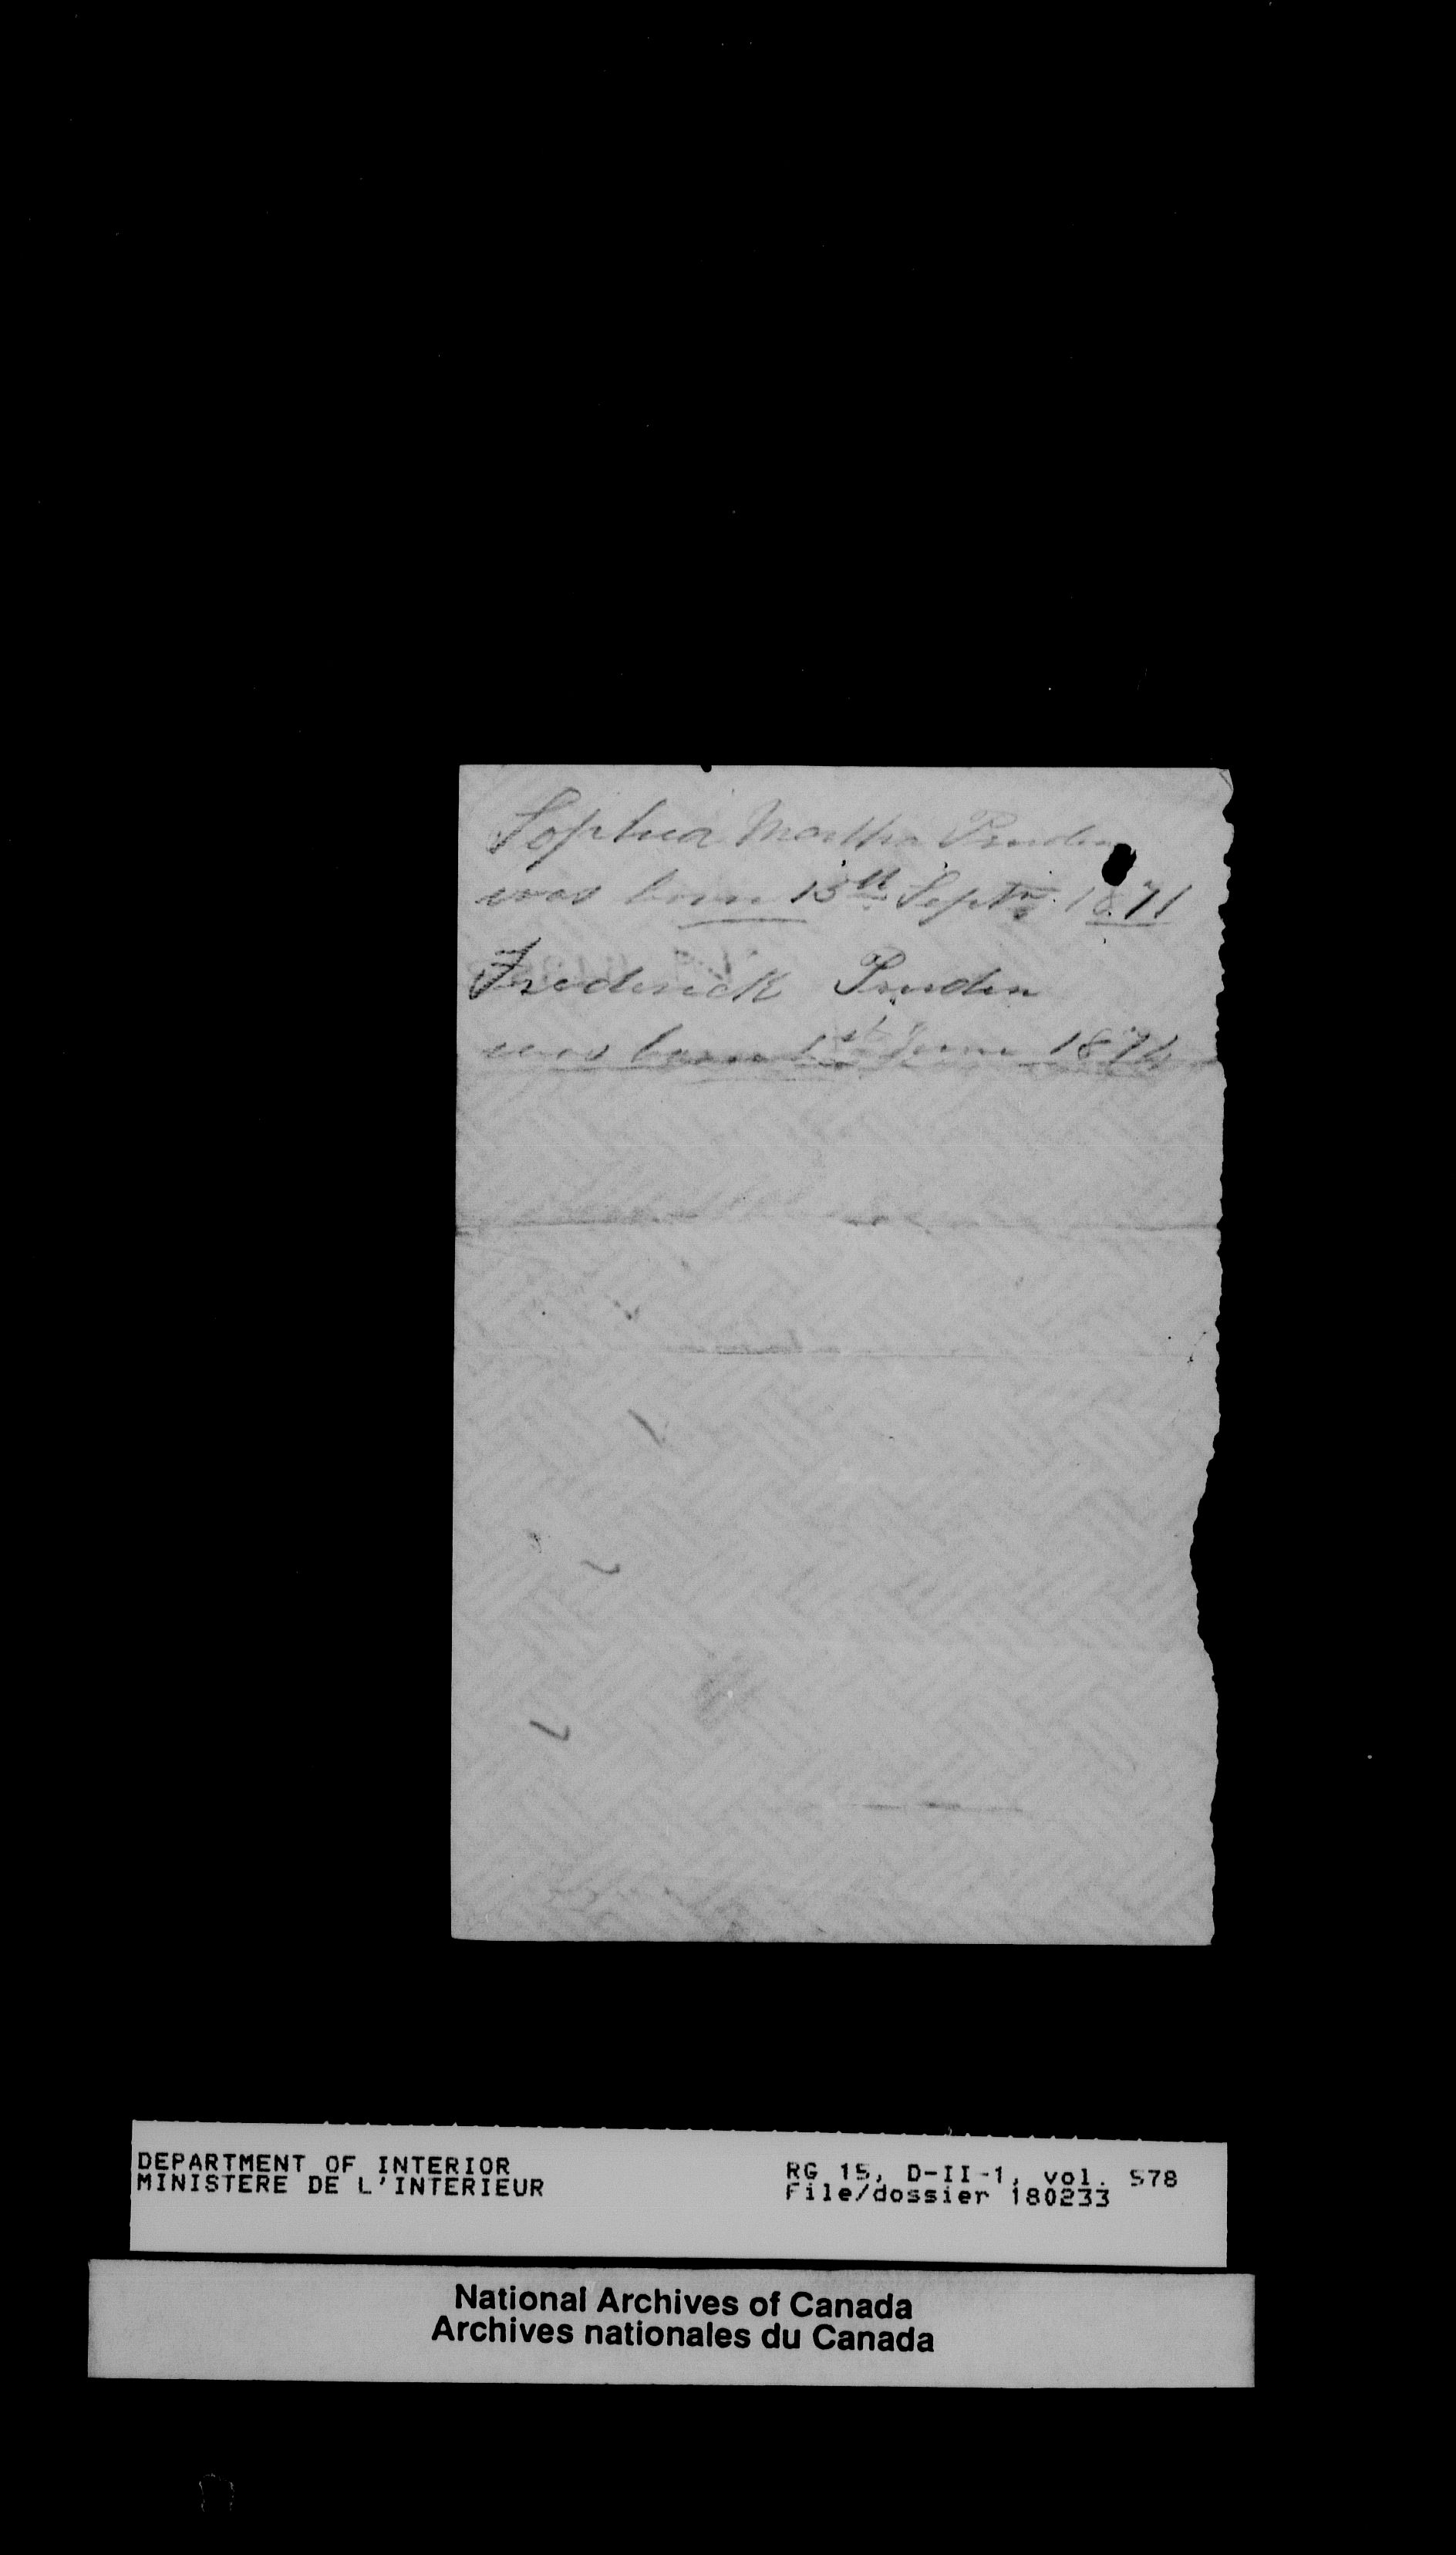 Sophia Martha Pruden
was born 15th Septr. 1871
Frederick Pruden
was born 1st June 1874
DEPARTMENT OF INTERIOR
MINISTERE DE L'INTERIEUR
RG 15, D-II-1, vol. 578
File/dossier 180233
National Archives of Canada
Archives nationales du Canada